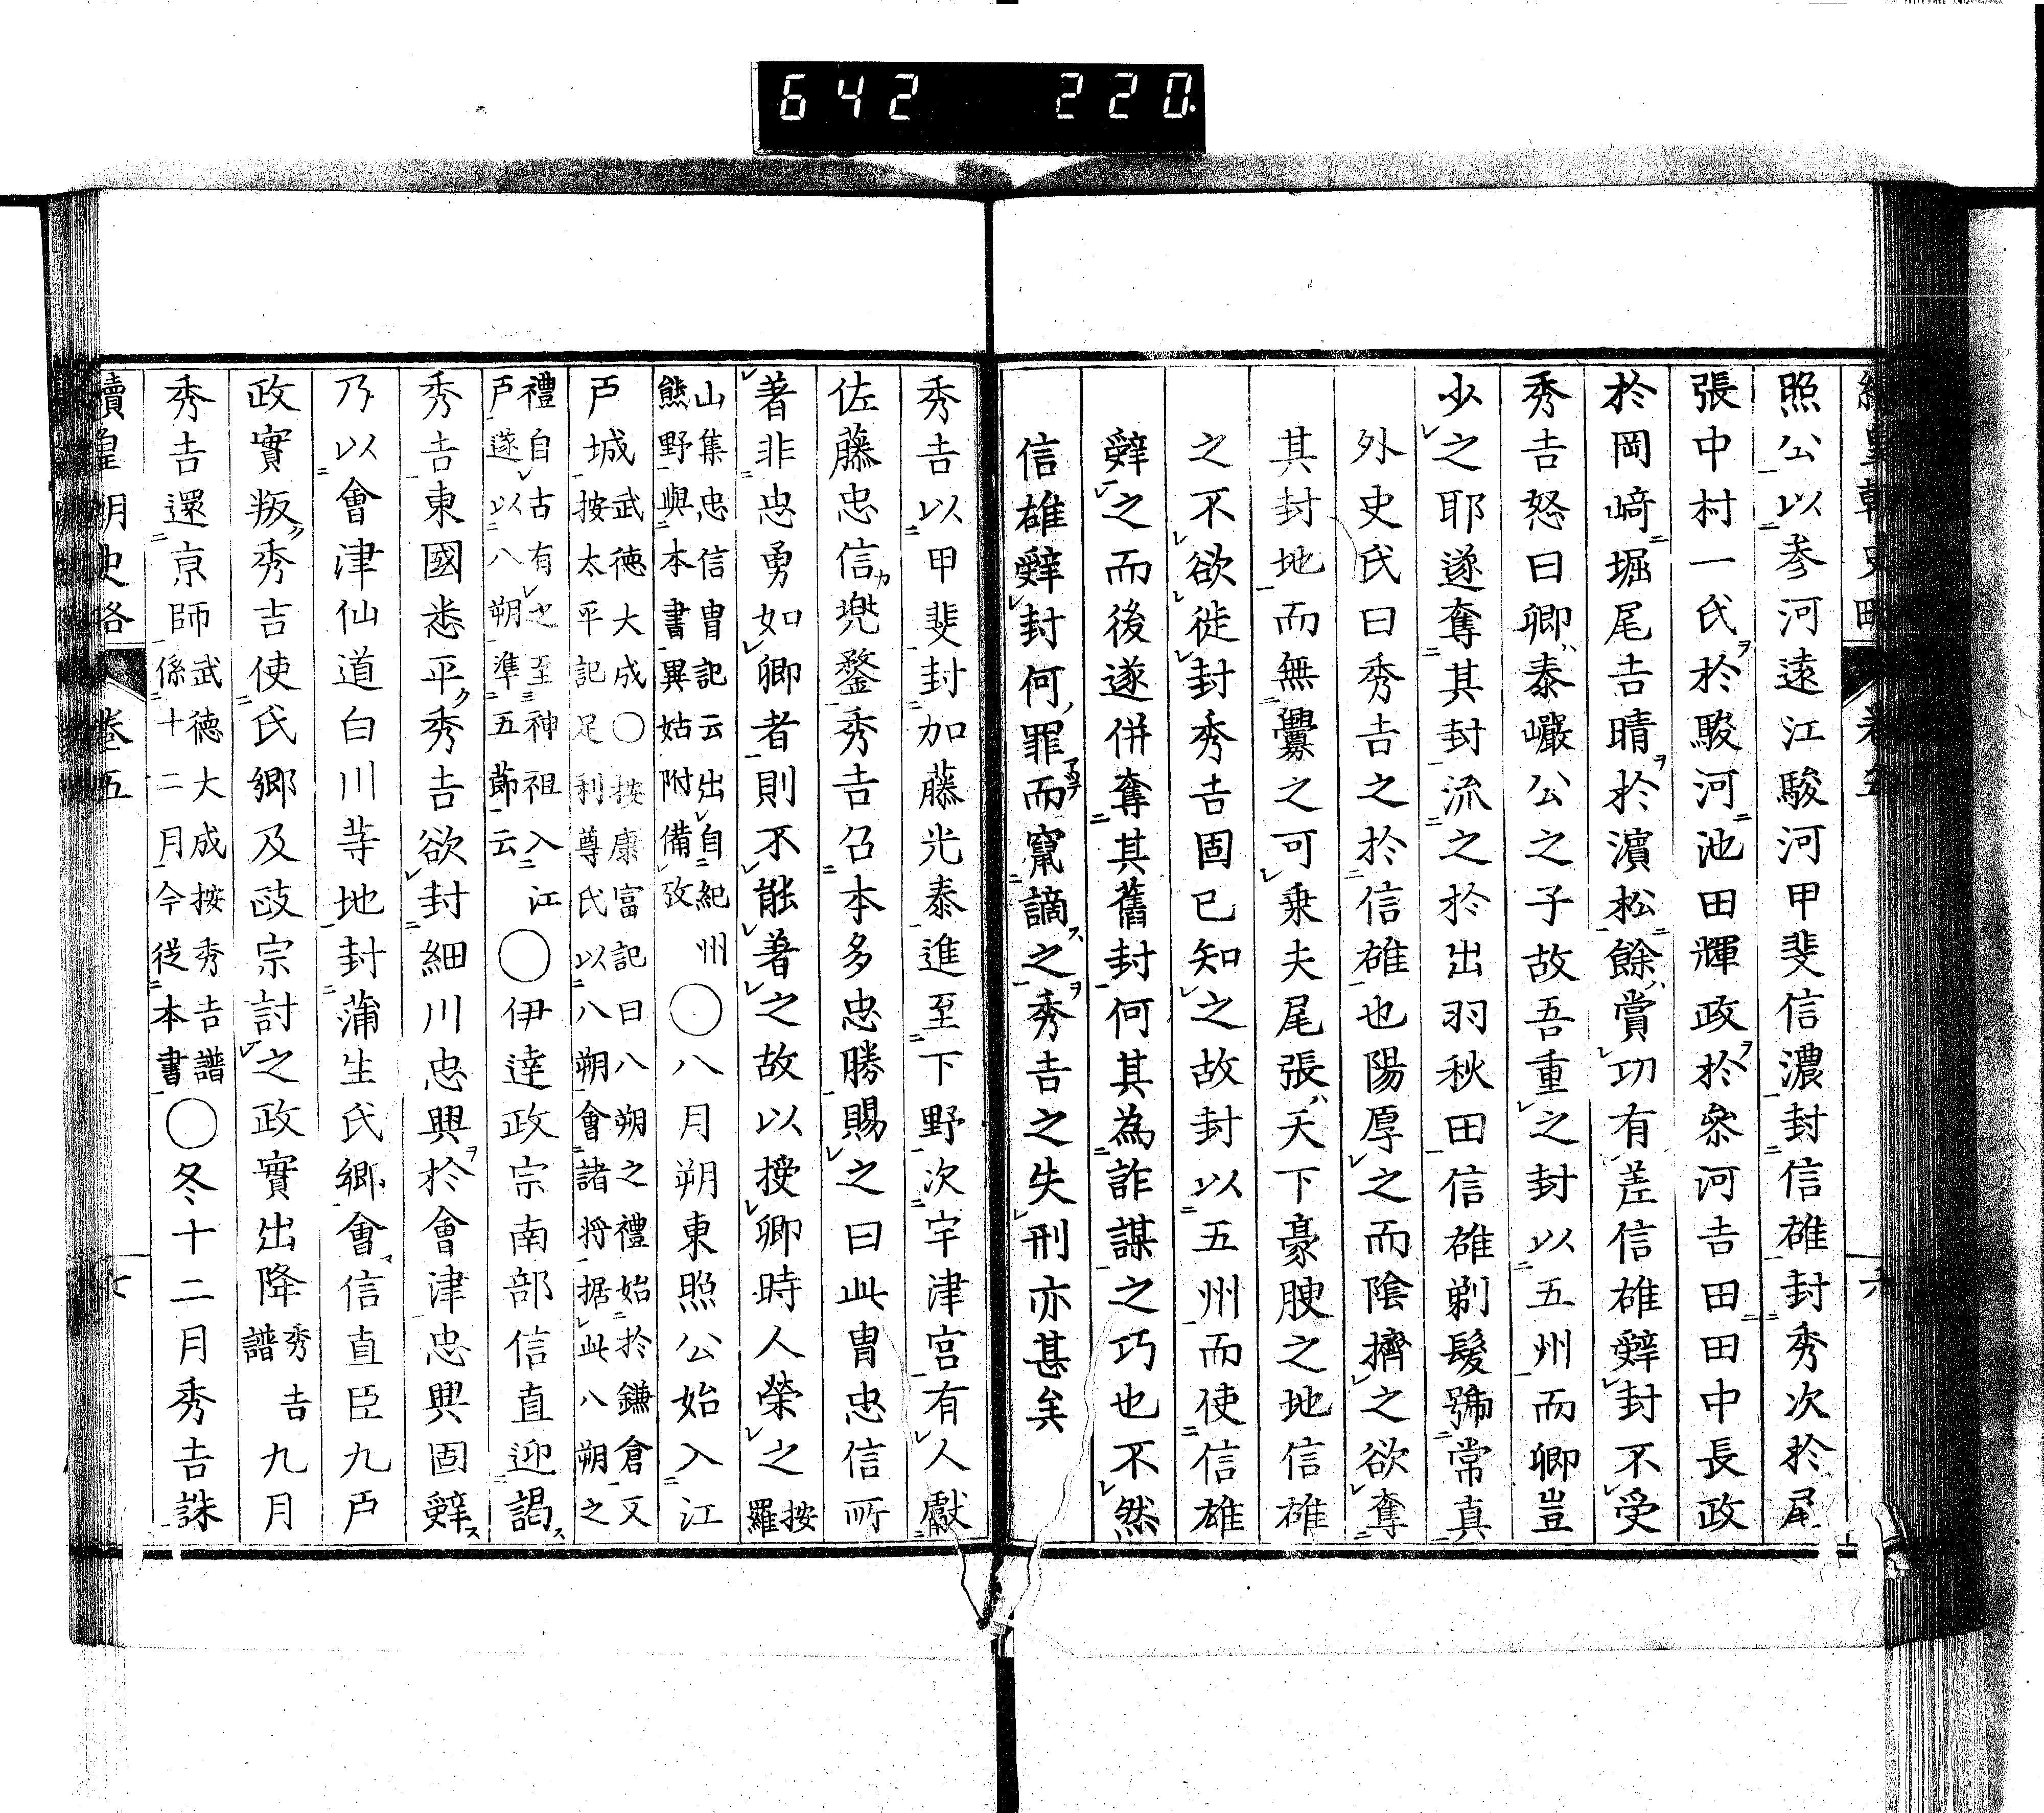 642 220
照公以参河遠江駿河甲斐信濃封信雄封秀次於尾
張中村一氏ヲ於駿河池田輝政ヲ於参河吉田田中長政
於岡﨑堀尾吉晴ヲ於濵松餘ハ賞功有差信雄辭封不受
秀吉怒曰卿ハ泰巖公之子故吾重之封以五州而卿豈
少之耶遂奪其封流之於出羽秋田信雄剃髮號常真
外史氏曰秀吉之於信雄也陽厚之而陰擠之欲奪
其封地而無釁之可乗夫尾張ハ天下豪腴之地信雄
之不欲徙封秀吉固已知之故封以五州而使信雄
辭之而後遂併奪其舊封何其為詐謀之巧也不然
信雄辭封何ノ罪アリテ而竄謫ス之ヲ秀吉之失刑亦甚矣
秀吉以甲斐封加藤光泰進至下野次宇津宮有人獻
佐藤忠信カ兜鍪秀吉召本多忠勝賜之曰此冑忠信所
著非忠勇如卿者則不能著之故以授卿時人榮之 按羅
山集忠信冑記云出自紀州熊野與本書異姑附備攷 ◯八月朔東照公始入江
戸城 武徳大成◯按康富記曰八朔之禮始於鎌倉又按太平記足利尊氏以八朔會諸将据此八朔之
禮自古有之至神祖入江戸遂以八朔準五節云 ◯伊達政宗南部信直迎謁ス
秀吉東國悉平ク秀吉欲封細川忠興ヲ於會津忠興固辭ス
乃以會津仙道白川等地封蒲生氏郷會信直臣九戸
政實叛ク秀吉使氏郷及政宗討之政實出降 秀吉譜 九月
秀吉還京師 武徳大成按秀吉譜係十二月今従本書 ◯冬十二月秀吉誅
續皇朝史略 卷五 七